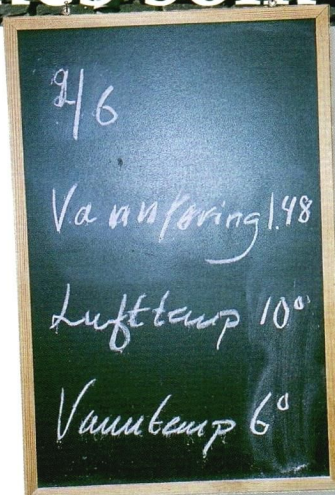 2/6
Vannføring 1.48
Lufttemp 10°
Vanntemp 6°